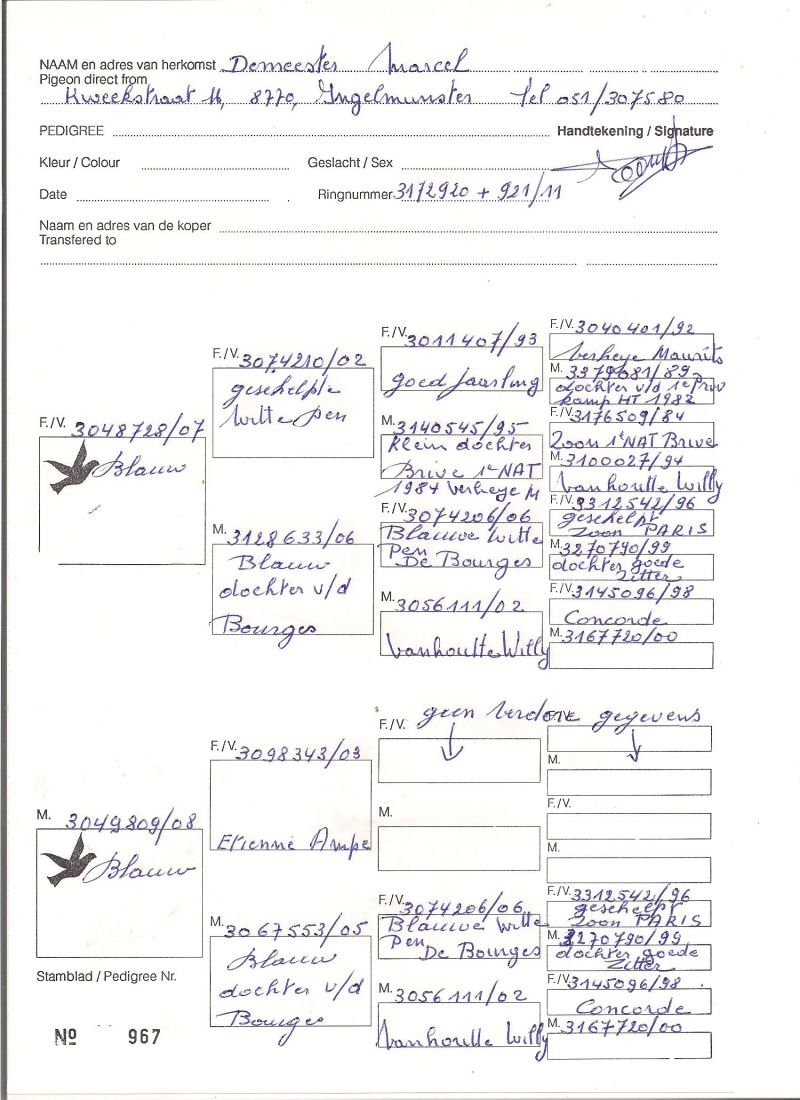 NAAM en adres van herkomst Demeester Marcel
Pigeon direct from
Kweekstraat 16, 8770, Ingelmunster Tel 051/307580
PEDIGREE Handtekening / Signature
Kleur / Colour Geslacht / Sex
Date Ringnummer 3172920 + 921/11
Naam en adres van de koper
Transfered to
F./V. 3048728/07
Blauw
F./V. 3074210/02
geschelpte
witte pen
M. 3128633/06
Blauw
dochter v/d
Bourges
F./V. 3011407/93
goed jaarling
M. 3140545/95
Klein dochter
Brive 1e NAT
1984 Verheye M
F./V. 3074206/06
Blauwe witte
Pen
De Bourges
M. 3056111/02
Vanhoutte Willy
F./V. 3040401/92
Verheye Maurits
M. 3379081/89
dochter v/d 1e Prov
kamp HT 1982
F./V. 3176509/84
Zoon 1e NAT Brive
M. 3100027/94
Vanhoutte Willy
F./V. 3312542/96
geschelpt
zoon PARIS
M. 3270790/99
dochter goede
Zitter
F./V. 3145096/98
Concorde
M. 3167720/00
M. 3049809/08
Blauw
F./V. 3098343/03
Etienne Ampe
M. 3067553/05
Blauw
dochter v/d
Bourges
geen verdere gegevens
F./V.
M.
F./V. 3074206/06
Blauwe witte
Pen
De Bourges
M. 3056111/02
Vanhoutte Willy
F./V.
M.
F./V.
M.
F./V. 3312542/96
geschelpt
zoon PARIS
M. 3270790/99
dochter goede
Zitter
F./V. 3145096/98
Concorde
M. 3167720/00
Stamblad / Pedigree Nr.
Nº 967